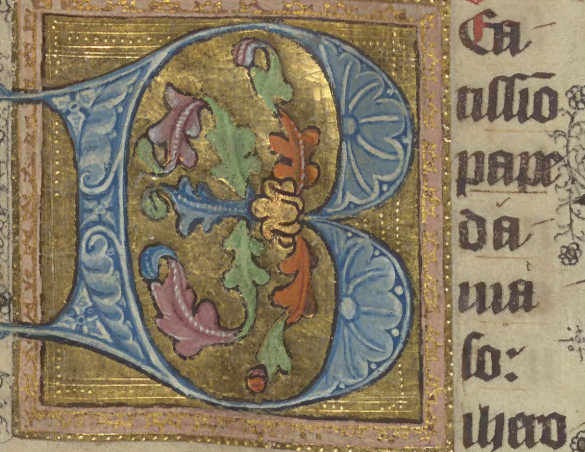 B Ea-
tiſſiō
pape
da-
ma
ſo:
ihero